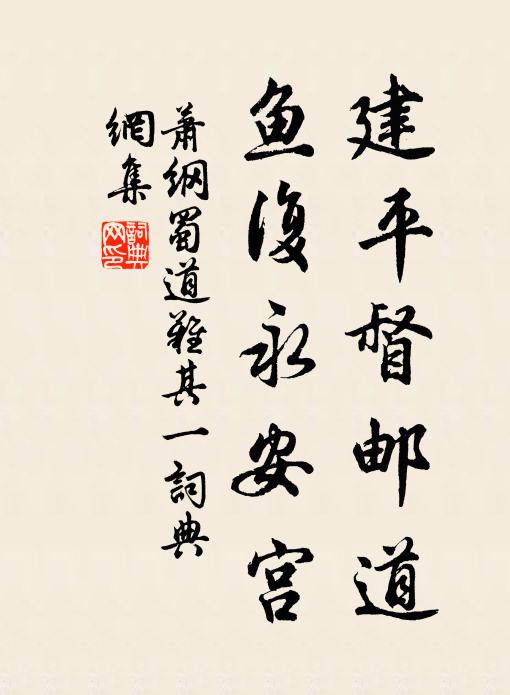 建平督邮道
鱼復永安宫
萧纲蜀道難其一詞典
網集
詞典網印